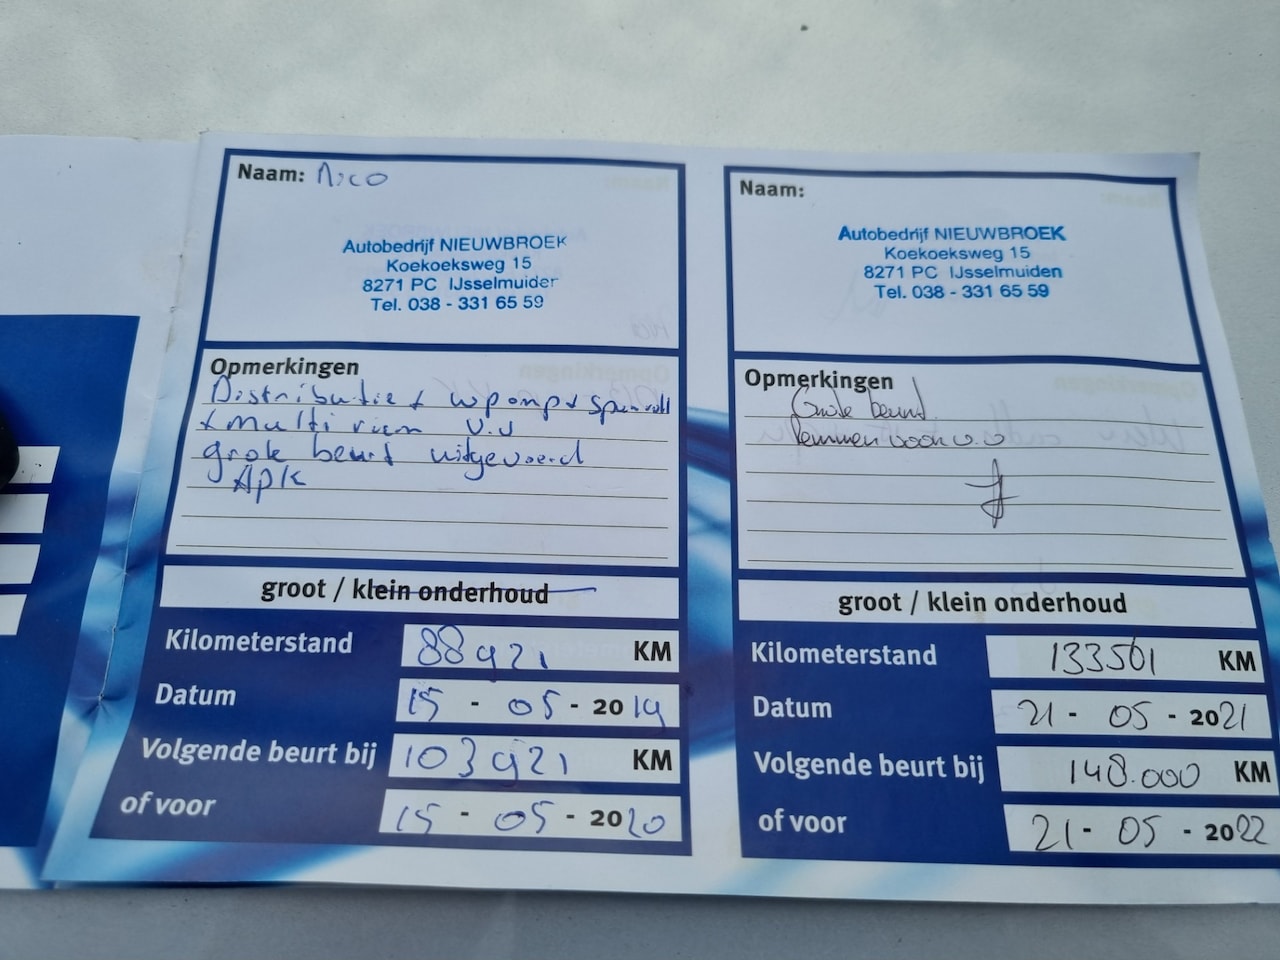 Naam: Nico
Autobedrijf NIEUWBROEK
Koekoeksweg 15
8271 PC IJsselmuiden
Tel. 038 - 331 65 59
Opmerkingen
Distributie + wpomp + spanrol
+ multi riem v.v
grote beurt uitgevoerd
APK
groot / klein onderhoud
Kilometerstand 88921 KM
Datum 15 - 05 - 2019
Volgende beurt bij 103921 KM
of voor 15 - 05 - 2020
Naam:
Autobedrijf NIEUWBROEK
Koekoeksweg 15
8271 PC IJsselmuiden
Tel. 038 - 331 65 59
Opmerkingen
Grote beurt
Remmen voor v.v
groot / klein onderhoud
Kilometerstand 133501 KM
Datum 21 - 05 - 2021
Volgende beurt bij 148.000 KM
of voor 21 - 05 - 2022